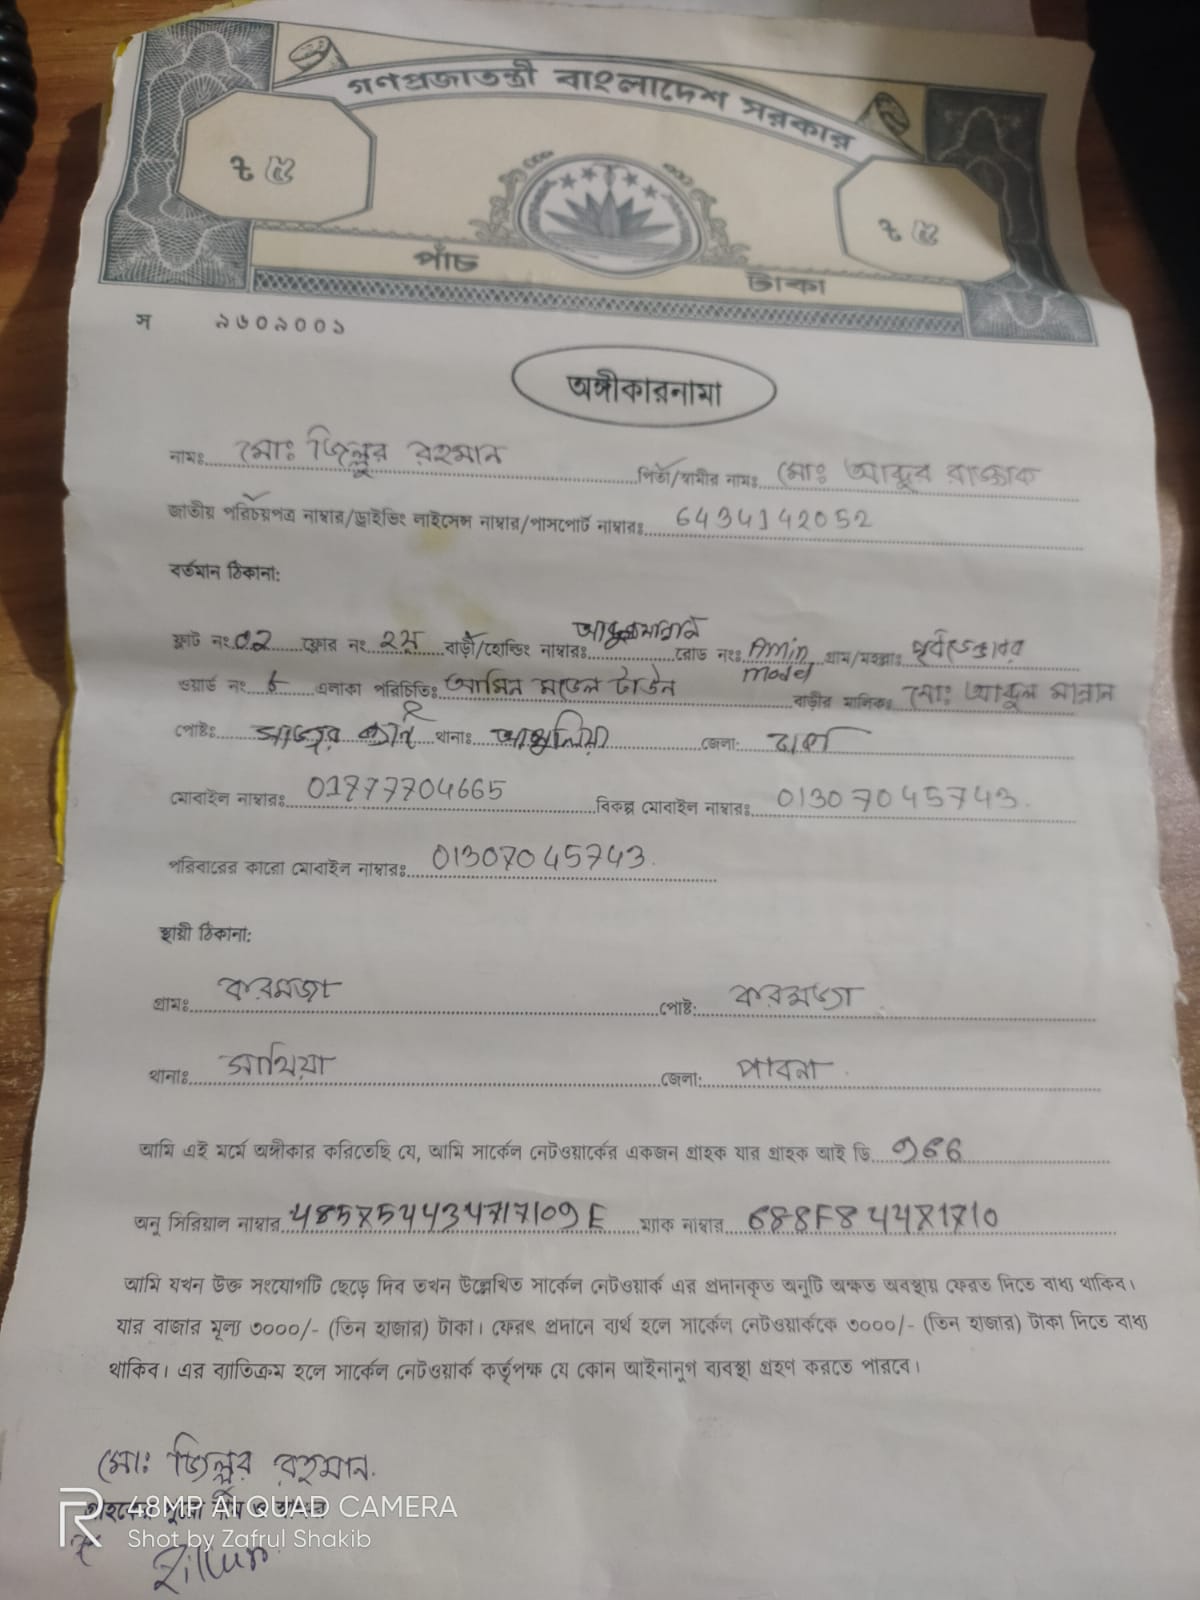 গণপ্রজাতন্ত্রী বাংলাদেশ সরকার
৳ ৫
৳ ৫
পাঁচ টাকা
স ৯৬০৯০০১
অঙ্গীকারনামা
নামঃ মোঃ জিল্লুর রহমান পিতা/স্বামীর নামঃ মোঃ আব্দুর রাজ্জাক
জাতীয় পরিচয়পত্র নাম্বার/ড্রাইভিং লাইসেন্স নাম্বার/পাসপোর্ট নাম্বারঃ 6434142052
বর্তমান ঠিকানা:
ফ্লাট নং 02 ফ্লোর নং ২য় বাড়ী/হোল্ডিং নাম্বারঃ রোড নংঃ Amin Model গ্রাম/মহল্লাঃ
ওয়ার্ড নং ৮ এলাকা পরিচিতিঃ আমিন মডেল টাউন বাড়ীর মালিকঃ মোঃ আব্দুল মান্নান
পোষ্টঃ থানাঃ আশুলিয়া জেলা: ঢাকা
মোবাইল নাম্বারঃ 01877704665 বিকল্প মোবাইল নাম্বারঃ 01307045743.
পরিবারের কারো মোবাইল নাম্বারঃ 01307045743.
স্থায়ী ঠিকানা:
গ্রামঃ করমজা পোষ্ট: করমজা
থানাঃ সাথিয়া জেলা: পাবনা
আমি এই মর্মে অঙ্গীকার করিতেছি যে, আমি সার্কেল নেটওয়ার্কের একজন গ্রাহক যার গ্রাহক আই ডি 966
অনু সিরিয়াল নাম্বার ম্যাক নাম্বার
আমি যখন উক্ত সংযোগটি ছেড়ে দিব তখন উল্লেখিত সার্কেল নেটওয়ার্ক এর প্রদানকৃত অনুটি অক্ষত অবস্থায় ফেরত দিতে বাধ্য থাকিব।
যার বাজার মূল্য ৩০০০/- (তিন হাজার) টাকা। ফেরৎ প্রদানে ব্যর্থ হলে সার্কেল নেটওয়ার্ককে ৩০০০/- (তিন হাজার) টাকা দিতে বাধ্য
থাকিব। এর ব্যাতিক্রম হলে সার্কেল নেটওয়ার্ক কর্তৃপক্ষ যে কোন আইনানুগ ব্যবস্থা গ্রহণ করতে পারবে।
মোঃ জিল্লুর রহমান.
48MP AI QUAD CAMERA
Shot by Zafrul Shakib
Zillur